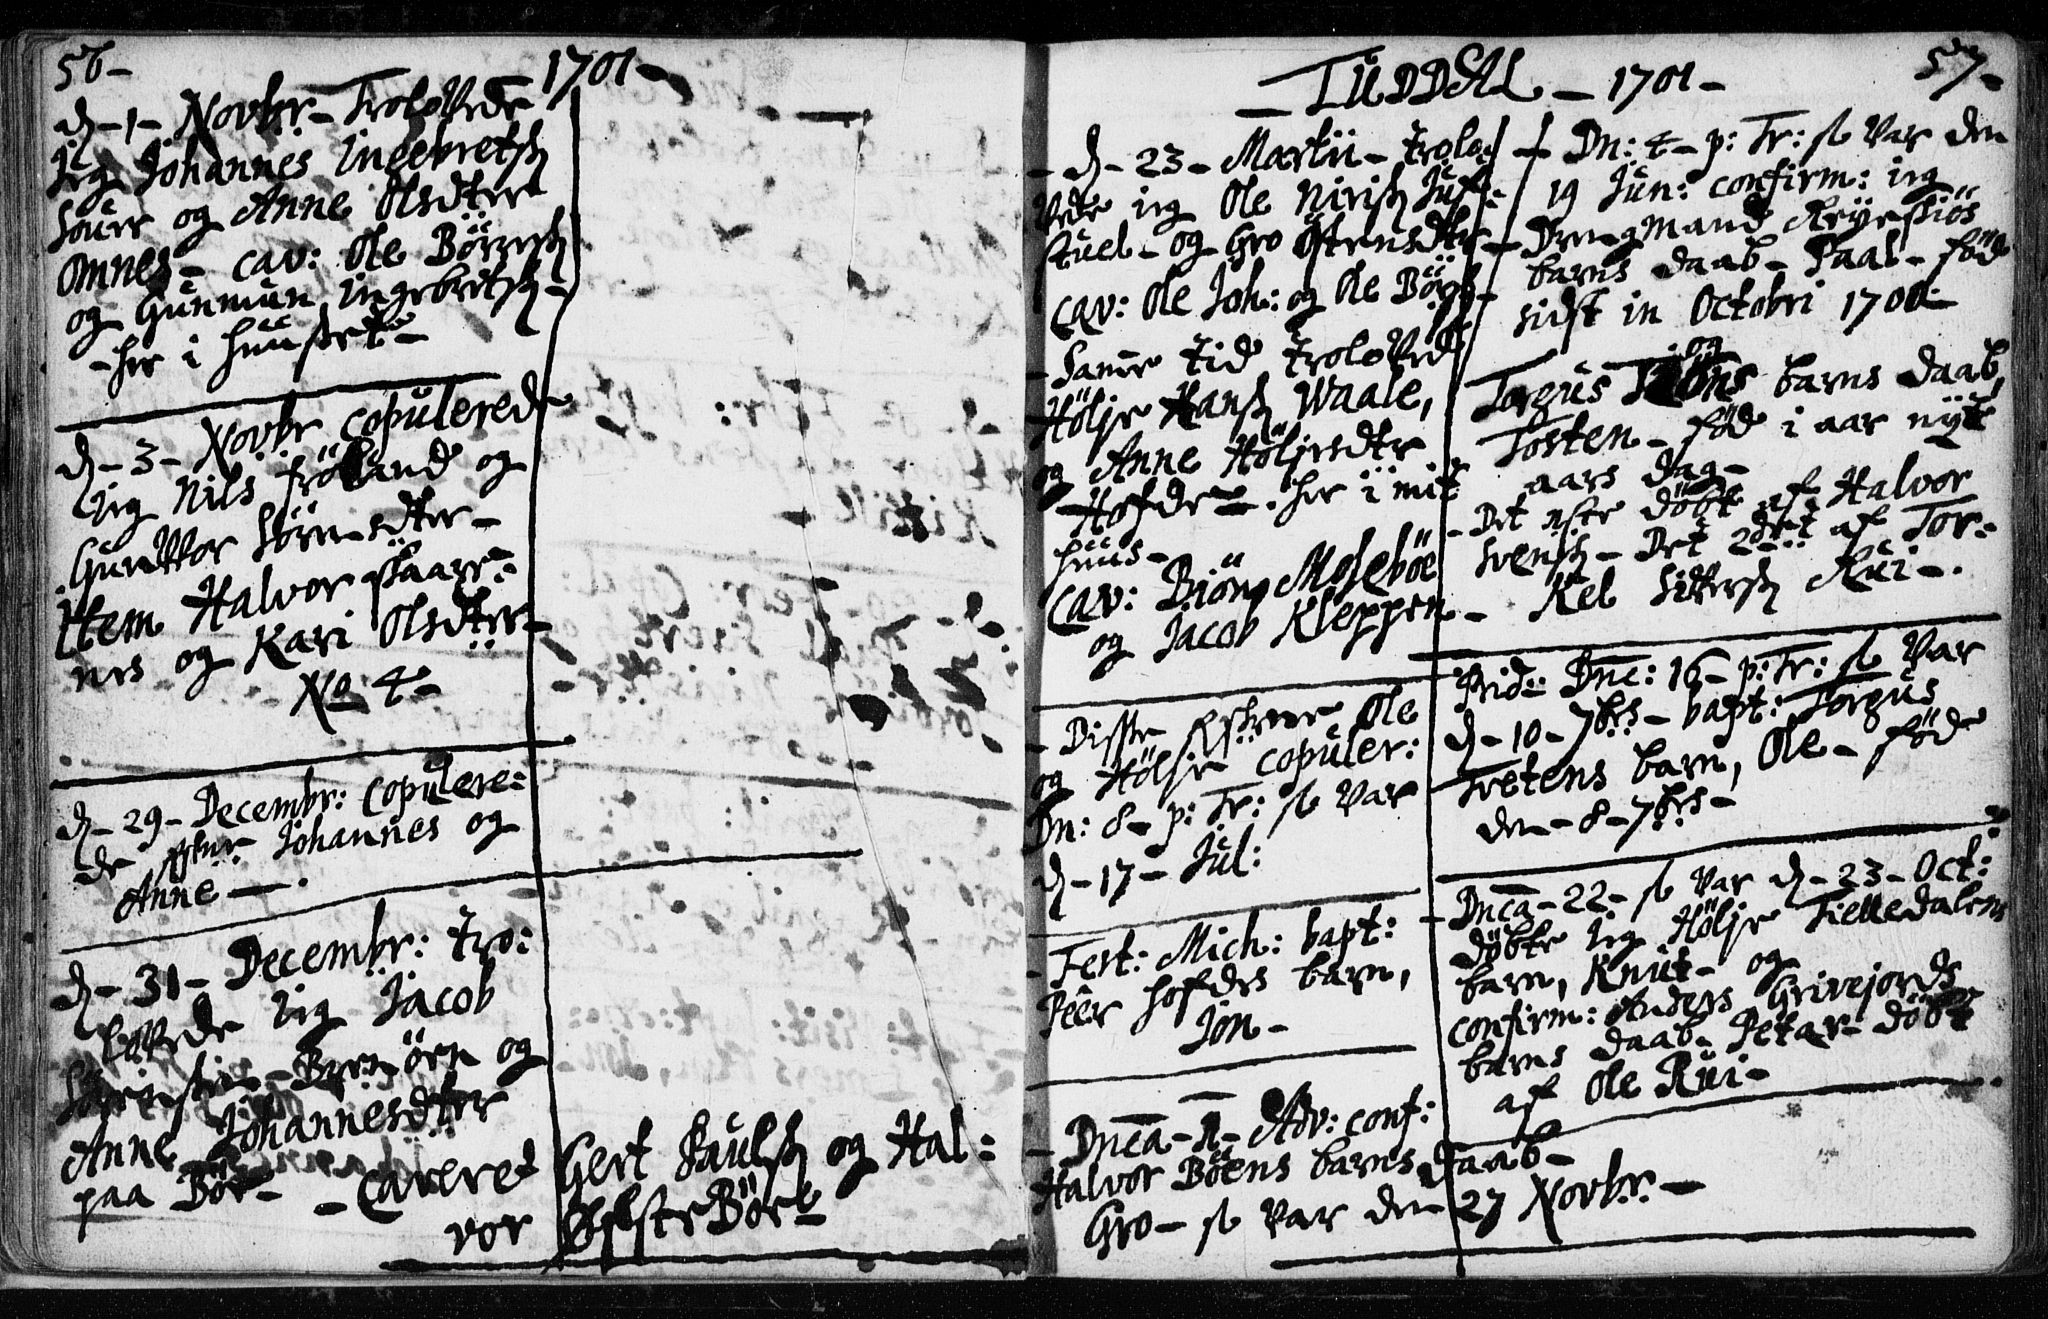 56-
-1701-
d-1- Novbr- Trolovede
ieg Johannes Ingebretß
og Anne Olsdter
Omnes- cav: Ole Börgeß
og Gunmun Ingebretß-
-her i huuset-
d-3- Novbr copulerede
ieg Nils Fröland og
Gunvor Sörensdter-
Item Halvor Skaare-
nes og Kari Olsdter-
No 4-
d-29- Decembr: copulere-
de Johannes og
Anne-.
d-31- Decembr: tro:
lovede ieg Jacob
og
Anne Johannesdter
paa Bör- - caveret Gert Paulß og Hal:
vor Böre
-TUDDAL - 1701-
57-
- d- 23- Martii- trolo:
vede ieg Ole Nirisß
stuel- og Gro Östensdter-
cav: Ole Joh: og Ole Börgß-
- Samme tid trolovede
Hölje Hanß Waale,
og Anne Höljesdter
Hofde-. her i mit
huus-
cav: Biön Moseböe
og Jacob Kleppen-
- Disse Ole
og Hölje copuler:
Dn: 8- p: Tr: st var
d- 17- Jul:
- Fest: Mich: bapt:
Peer hofdes barn,
Jon-
- Dnica-1- Adv: conf:
Halvor Böens barns daab-
Gro- st var den 27 Novbr.-
- Dn: 4- p: Tr: st var den
19 Jun: confirm: ieg
barns daab- Paal- föd
sidst in Octobri 1700-
og
Torgus barns daab,
Tosten- föd i aar nyt
aars dag-
- Det döbt af Halvor
Svenß- Det 2det af Tor-
Kel Rui-.
- Dnc: 16- p: Tr: st var
d- 10- 7brs- bapt: Torgus
Tvetens barn, Ole- föd
den- 8- 7brs-
- Dnica- 22- st var d- 23- Oct:
döbte ieg Hölje Tielledalens
barn, Knut- og
confirm: Anders Grivejords
barns daab- Petar- döbt
af Ole Rui-